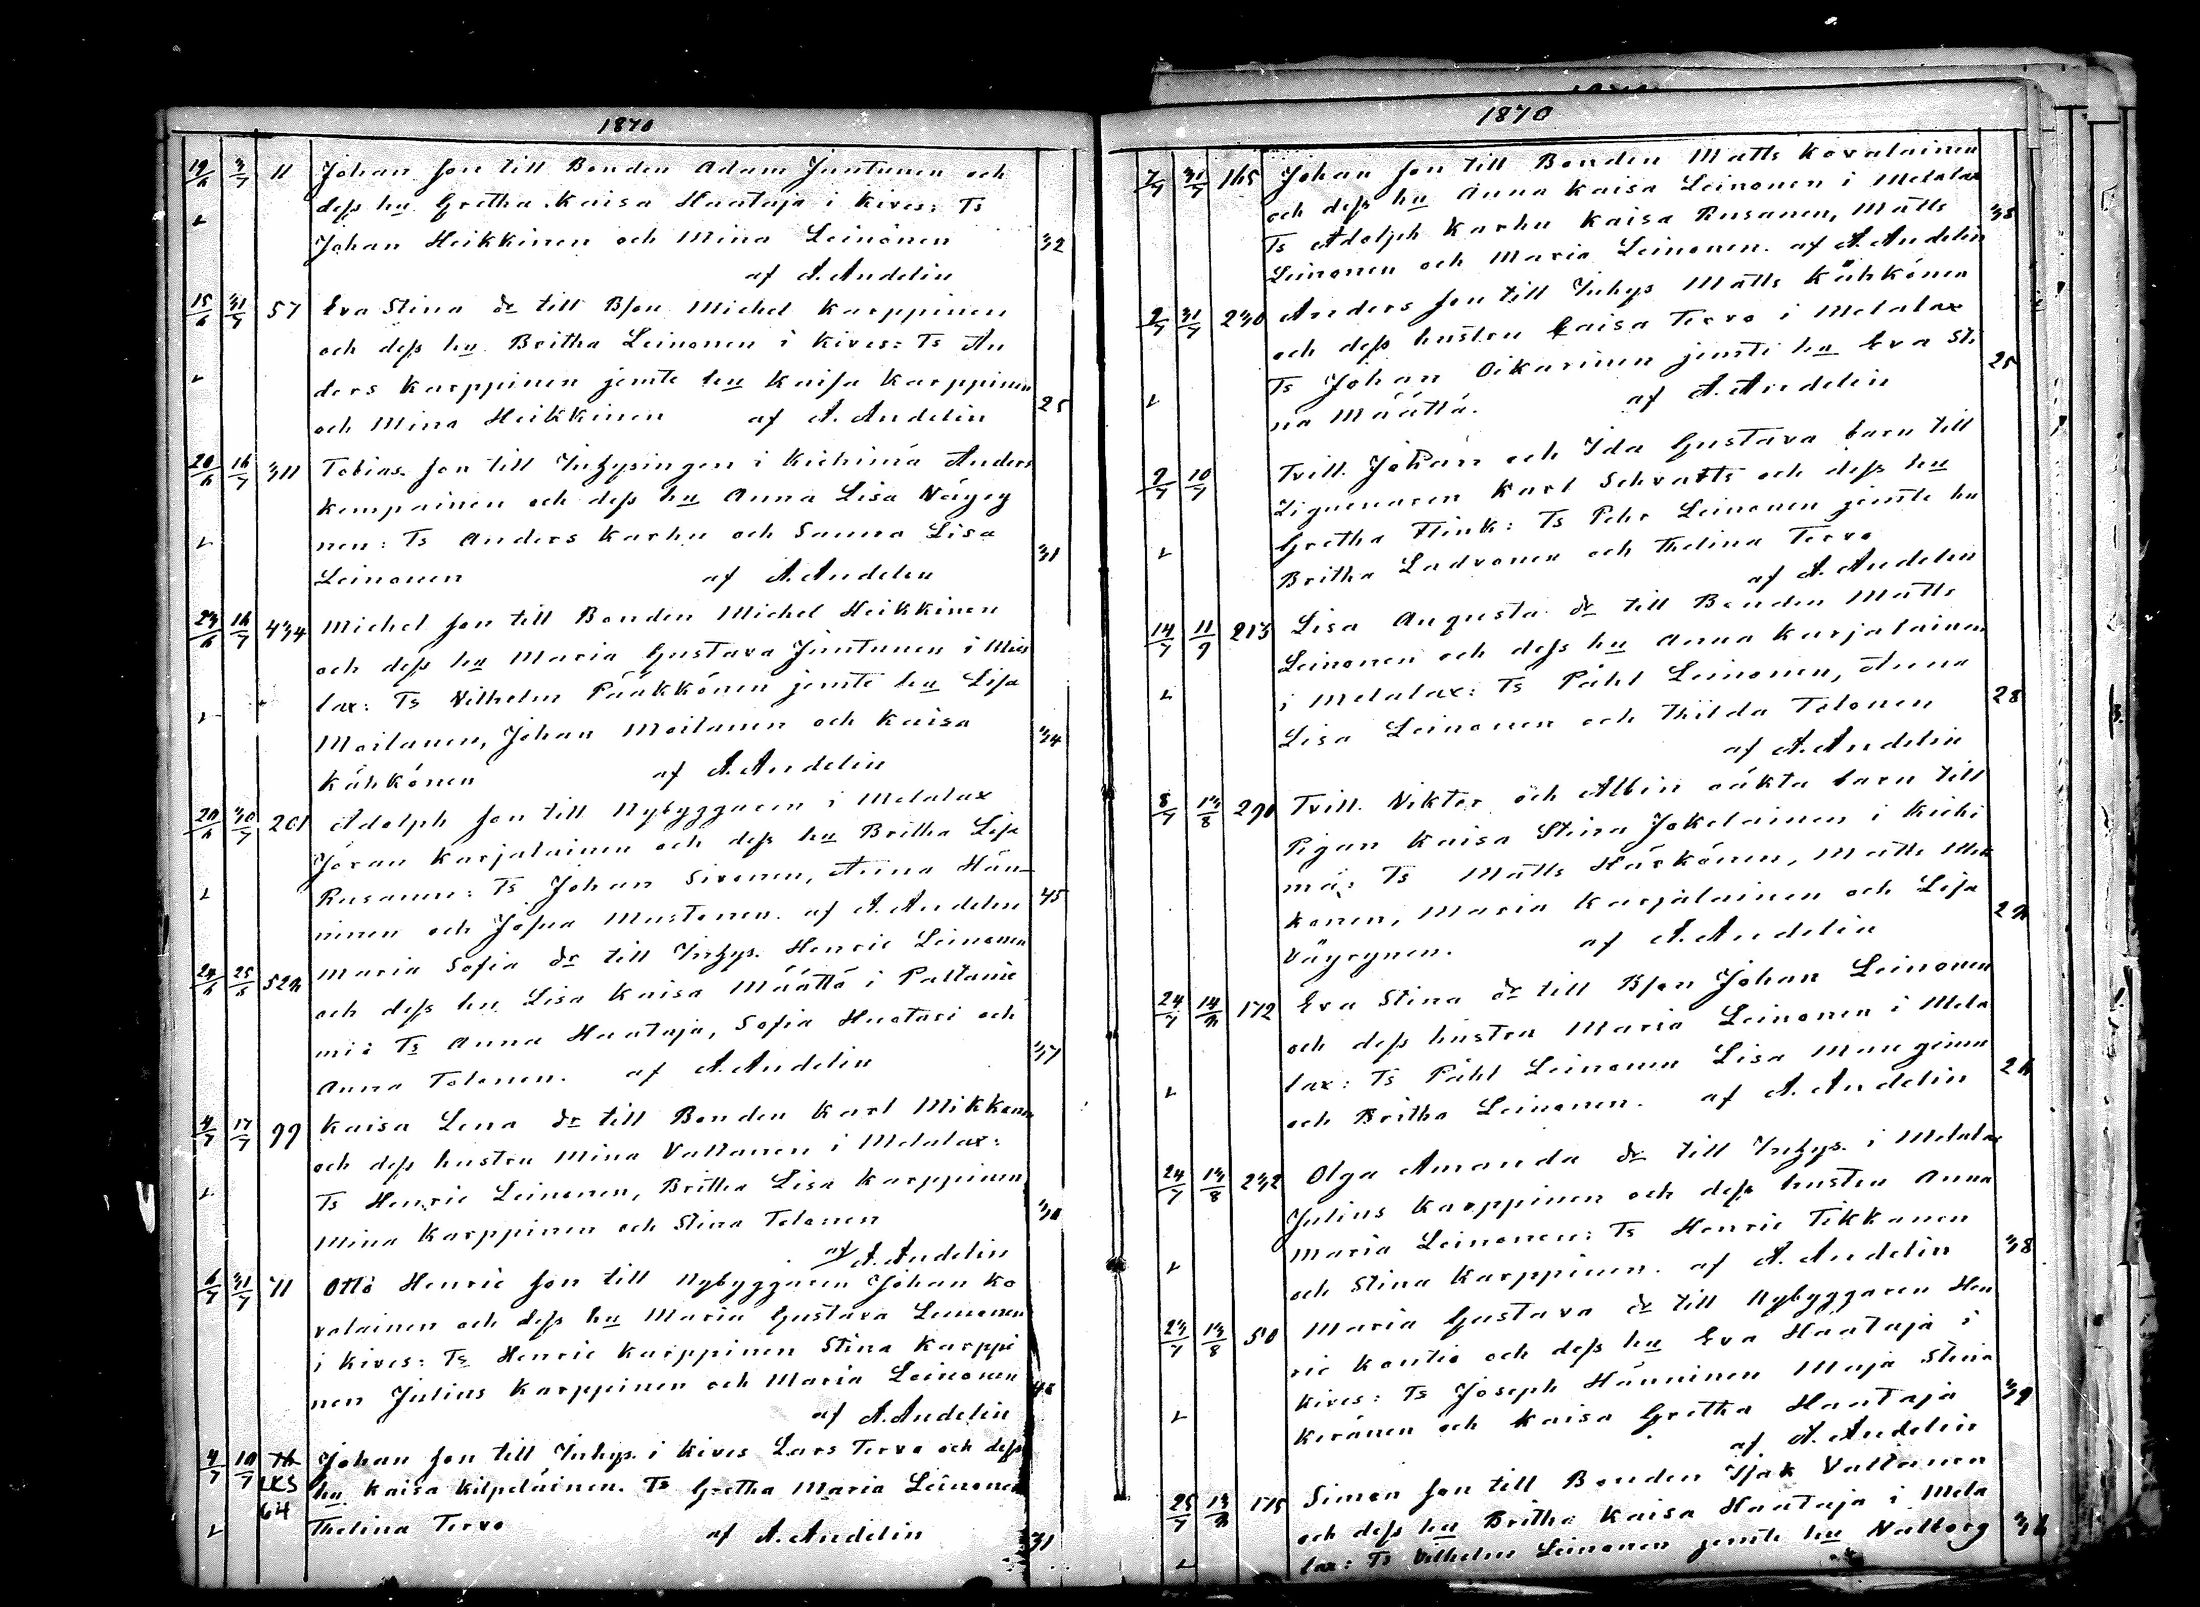 1870
19/6 3/7 11 Johan son till Bonden Adam Juntunen och
dess hu Gretha Kaisa Haataja i Kives: Ts
Johan Heikkinen och Mina Leinonen 32
af A. Andelin
15/6 31/7 57 Eva Stina dr till Bson Michel Karppinen
och dess hu Britha Leinonen i Kives: Ts An
ders Karppinen jemte hu Kaisa Karppinen
och Mina Heikkinen af A. Andelin 25
20/6 16/7 311 Tobias son till Inhysingen i Kiehimä Anders
Komppainen och dess hu Anna Lisa Väyry
nen: Ts Anders Karhu och Sanna Lisa 31
Leinonen af A. Andelin
23/6 16/7 434 Michel son till Bonden Michel Heikkinen
och dess hu Maria Gustava Juntunen i Mies
lax: Ts Vilhelm Pääkkönen jemte hu Lisa
Moilanen, Johan Moilanen och Kaisa 34
Kähkönen af A. Andelin
20/6 30/7 201 Adolph son till Nybyggaren i Melalax
Jöran Karjalainen och dess hu Britha Lisa
Rusanen: Ts Johan Sirenen, Anna Hän- 45
ninen och Josua Mustonen. af A. Andelin
24/6 25/6 526 Maria Sofia dr till Inhys. Henric Leinonen
och dess hu Lisa Kaisa Määttä i Paltanie
mi: Ts Anna Haataja, Sofia Huotari och 37
Anna Tolonen. af A. Andelin
4/7 17/7 99 Kaisa Lena dr till Bonden Karl Mikkonen
och dess hustru Mina Valtanen i Melalax:
Ts Henric Leinonen, Britha Lisa Karppinen 30
Mina Karppinen och Stina Tolonen
af A. Andelin
6/7 31/7 71 Otto Henric son till Nybyggaren Johan Ko
valainen och dess hu Maria Gustava Leinonen
i Kives: Ts Henric Karppinen Stina Karppi
nen Julius Karppinen och Maria Leinonen
af A. Andelin
4/7 10/7 Johan son till Inhys. i Kives Lars Tervo och dess
64 hu Kaisa Kilpeläinen. Ts Gretha Maria Leinonen
Thelina Tervo af A. Andelin 31
1870
7/7 31/7 165 Johan son till Bonden Matts Kovalainen
och dess hu Anna Kaisa Leinonen i Melalax
Ts Adolph Karhu Kaisa Rusanen, Matts 35
Leinonen och Maria Leinonen. af A. Andelin
2/7 31/7 230 Anders son till Inhys Matts Kähkönen
och dess hustru Caisa Tervo i Melalax
Ts Johan Oikarinen jemte hu Eva Sti 25
na Määttä. af A. Andelin
9/7 10/7 Tvill. Johan och Ida Gustava barn till
Zigenaren Karl Schvarts och dess hu
Gretha Flink: Ts Pehr Leinonen jemte hu
Britha Ladvonen och Thelina Tervo
af A. Andelin
14/7 11/9 213 Lisa Augusta dr till Bonden Matts
Leinonen och dess hu Anna Karjalainen
i Melalax: Ts Påhl Leinonen, Anna
Lisa Leinonen och Thilda Tolonen 28
af A. Andelin
8/7 13/8 290 Tvill. Viktor och Albin oäkta barn till
Pigan Kaisa Stina Jokelainen i Kiehi
mä: Ts Matts Härkönen, Matts Mik
konen, Maria Karjalainen och Lisa 26
Väyrynen. af A. Andelin
24/7 14/8 172 Eva Stina dr till Bson Johan Leinonen
och dess hustru Maria Leinonen i Mela
lax: Ts Påhl Leinonen Lisa Manginen 26
och Britha Leinonen. af A. Andelin
24/7 13/8 232 Olga Amanda dr till Inhys. i Melalax
Julius Karppinen och dess hustru Anna
Maria Leinonen: Ts Henric Tikkanen 38
och Stina Karppinen. af A. Andelin
23/7 13/8 50 Maria Gustava dr till Nybyggaren Hen
ric Kontio och dess hu Eva Haataja i
Kives: Ts Joseph Hänninen Maja Stina 39
Keränen och Kaisa Gretha Haataja
af A. Andelin
25/7 175 Simon son till Bonden Isak Valtanen
och dess hu Britha Kaisa Haataja i Mela 36
lax: Ts Vilhelm Leinonen jemte hu Valborg